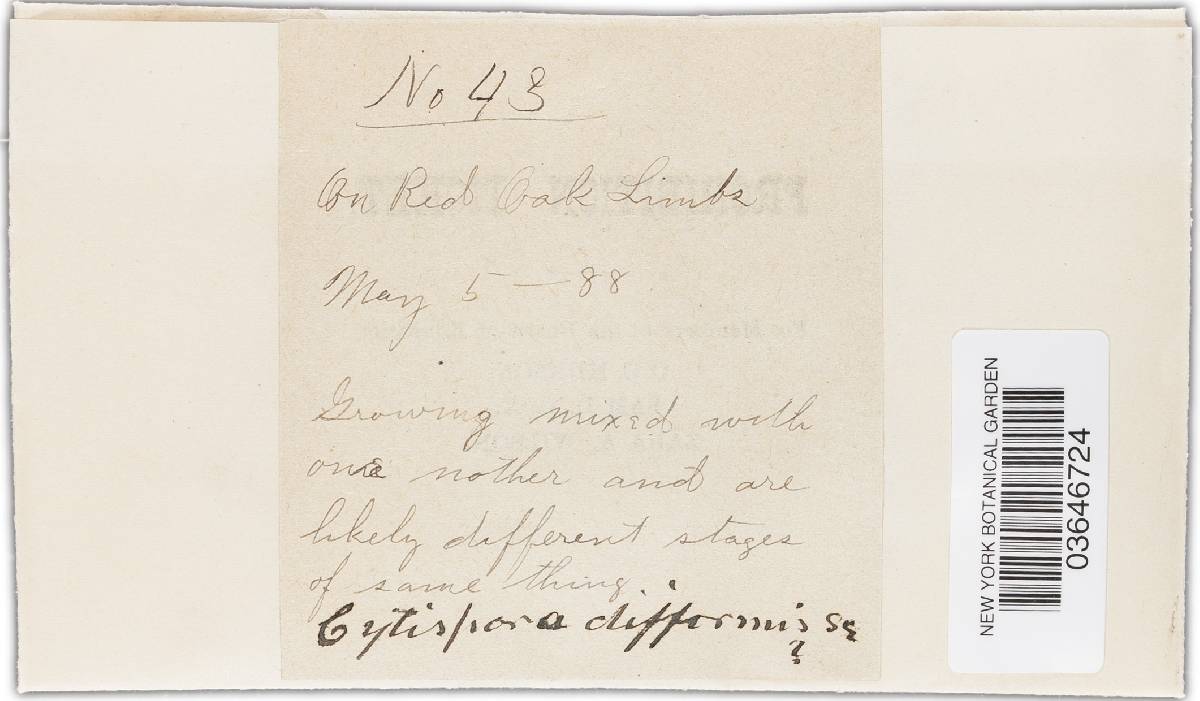 No 43
On Red Oak Limbs
May 5 — 88
Growing mixed with
one nother and are
likely different stages
of same thing.
Cytispora difformis Sz
?
NEW YORK BOTANICAL GARDEN
03646724